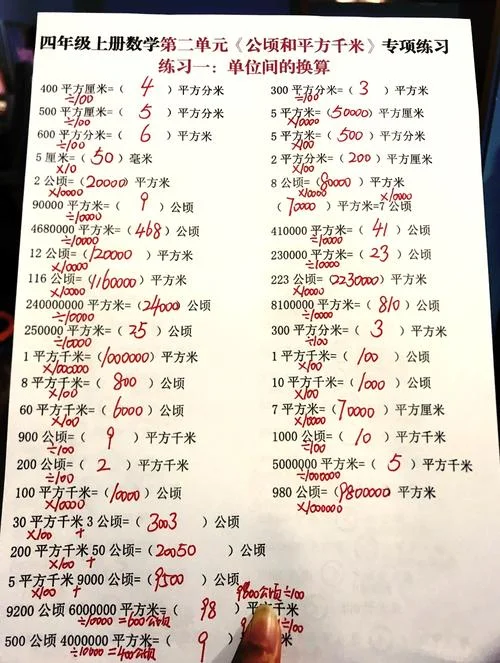 四年级上册数学第二单元《公顷和平方千米》专项练习
练习一：单位间的换算
400 平方厘米=( 4 )平方分米 300 平方分米=( 3 )平方米
÷100 ÷100
500 平方厘米=( 5 )平方分米 5 平方米=(50000)平方厘米
÷100 ×10000
600 平方分米=( 6 )平方米 5 平方米=( 500 )平方分米
÷100 ×100
5 厘米=( 50 )毫米 2 平方分米=( 200 )平方厘米
×10 ×100
2 公顷=(20000)平方米 8 公顷=(80000)平方米
×10000 ×10000
90000 平方米=( 9 )公顷 (70000)平方米=7 公顷
÷10000 ×10000
4680000 平方米=(468)公顷 410000 平方米=( 41 )公顷
÷10000 ÷10000
12 公顷=(120000)平方米 230000 平方米=( 23 )公顷
×10000 ÷10000
116 公顷=(1160000)平方米 223 公顷=(2230000)平方米
×10000 ×10000
240000000 平方米=(24000)公顷 8100000 平方米=( 810 )公顷
÷10000 ÷10000
250000 平方米=( 25 )公顷 300 平方分米=( 3 )平方米
÷10000 ÷100
1 平方千米=(1000000)平方米 1 平方千米=( 100 )公顷
×1000000 ×100
8 平方千米=( 800 )公顷 10 平方千米=(1000)公顷
×100 ×100
60 平方千米=(6000)公顷 7 平方米=(70000)平方厘米
×100 ×10000
900 公顷=( 9 )平方千米 1000 公顷=( 10 )平方千米
÷100 ÷100
200 公顷=( 2 )平方千米 5000000 平方米=( 5 )平方千米
÷100 ÷1000000
100 平方千米=(10000)公顷 980 公顷=(9800000)平方米
×100 ×10000
30 平方千米 3 公顷=( 3003 )公顷
×100 +
200 平方千米 50 公顷=(20050)公顷
×100 +
5 平方千米 9000 公顷=(9500)公顷
×100 +
9800公顷÷100
9200 公顷 6000000 平方米=( 98 )平方千米
÷10000=600公顷
500 公顷 4000000 平方米=( 9 )平方千米
÷10000=400公顷